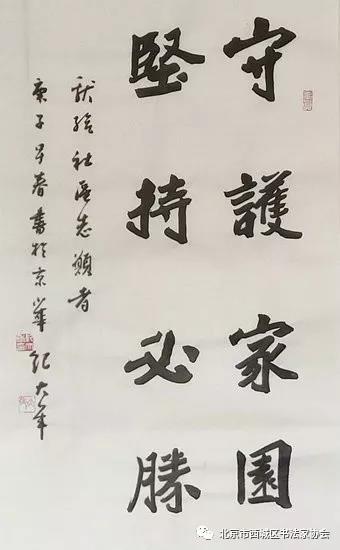 守護家園
堅持必勝
献给社區志願者
庚子早春書於京華 紀大年
北京市西城区书法家协会